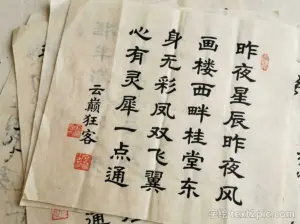 昨夜星辰昨夜风
画楼西畔桂堂东
身无彩凤双飞翼
心有灵犀一点通
云巅狂客